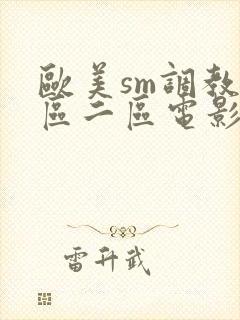 歐美sm調教
區二區電影
雷升武